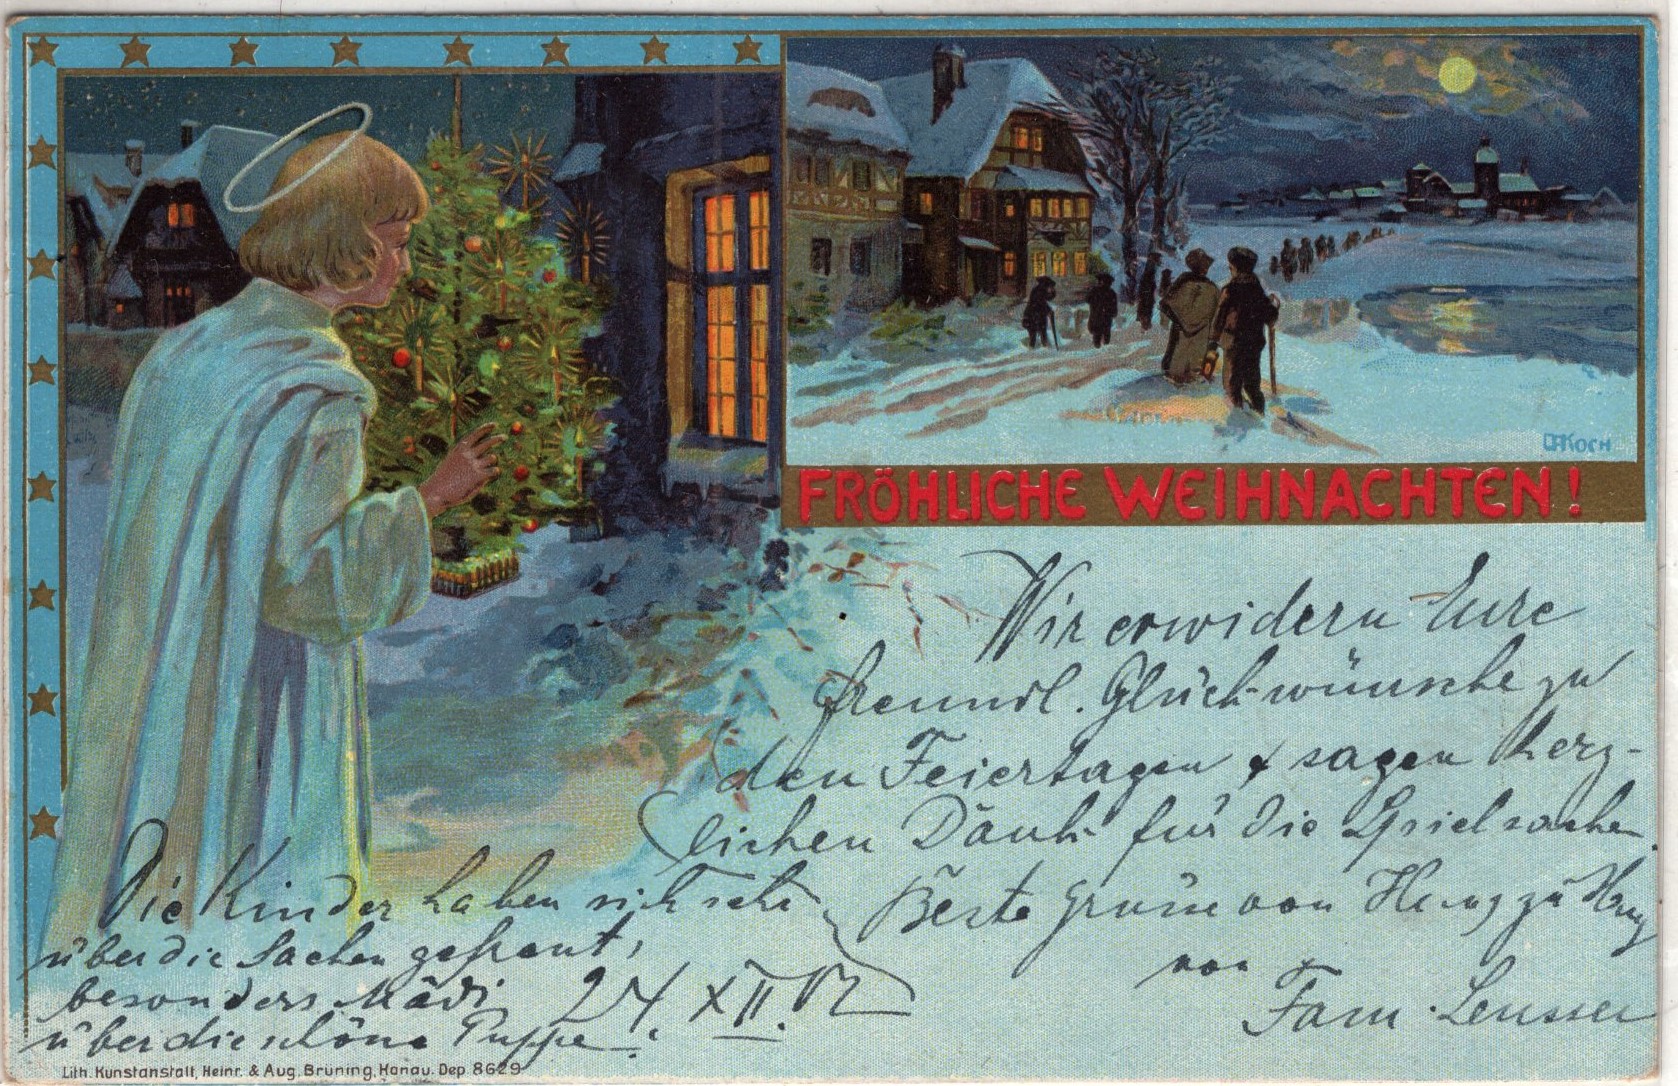 OAKOCH
FRÖHLICHE WEIHNACHTEN!
Wir erwidern Eure
freundl. Glückwünsche zu
den Feiertagen & sagen herz-
lichen Dank für die Spielsachen
Beste Grüsse von Haus zu Haus
von
Fam.
Die Kinder haben sich sehr
über die Sachen gefreut,
besonders Mädi
über die schöne Puppe.
24. XII.
Lith. Kunstanstalt, Heinr. & Aug. Brüning, Hanau. Dep. 8629